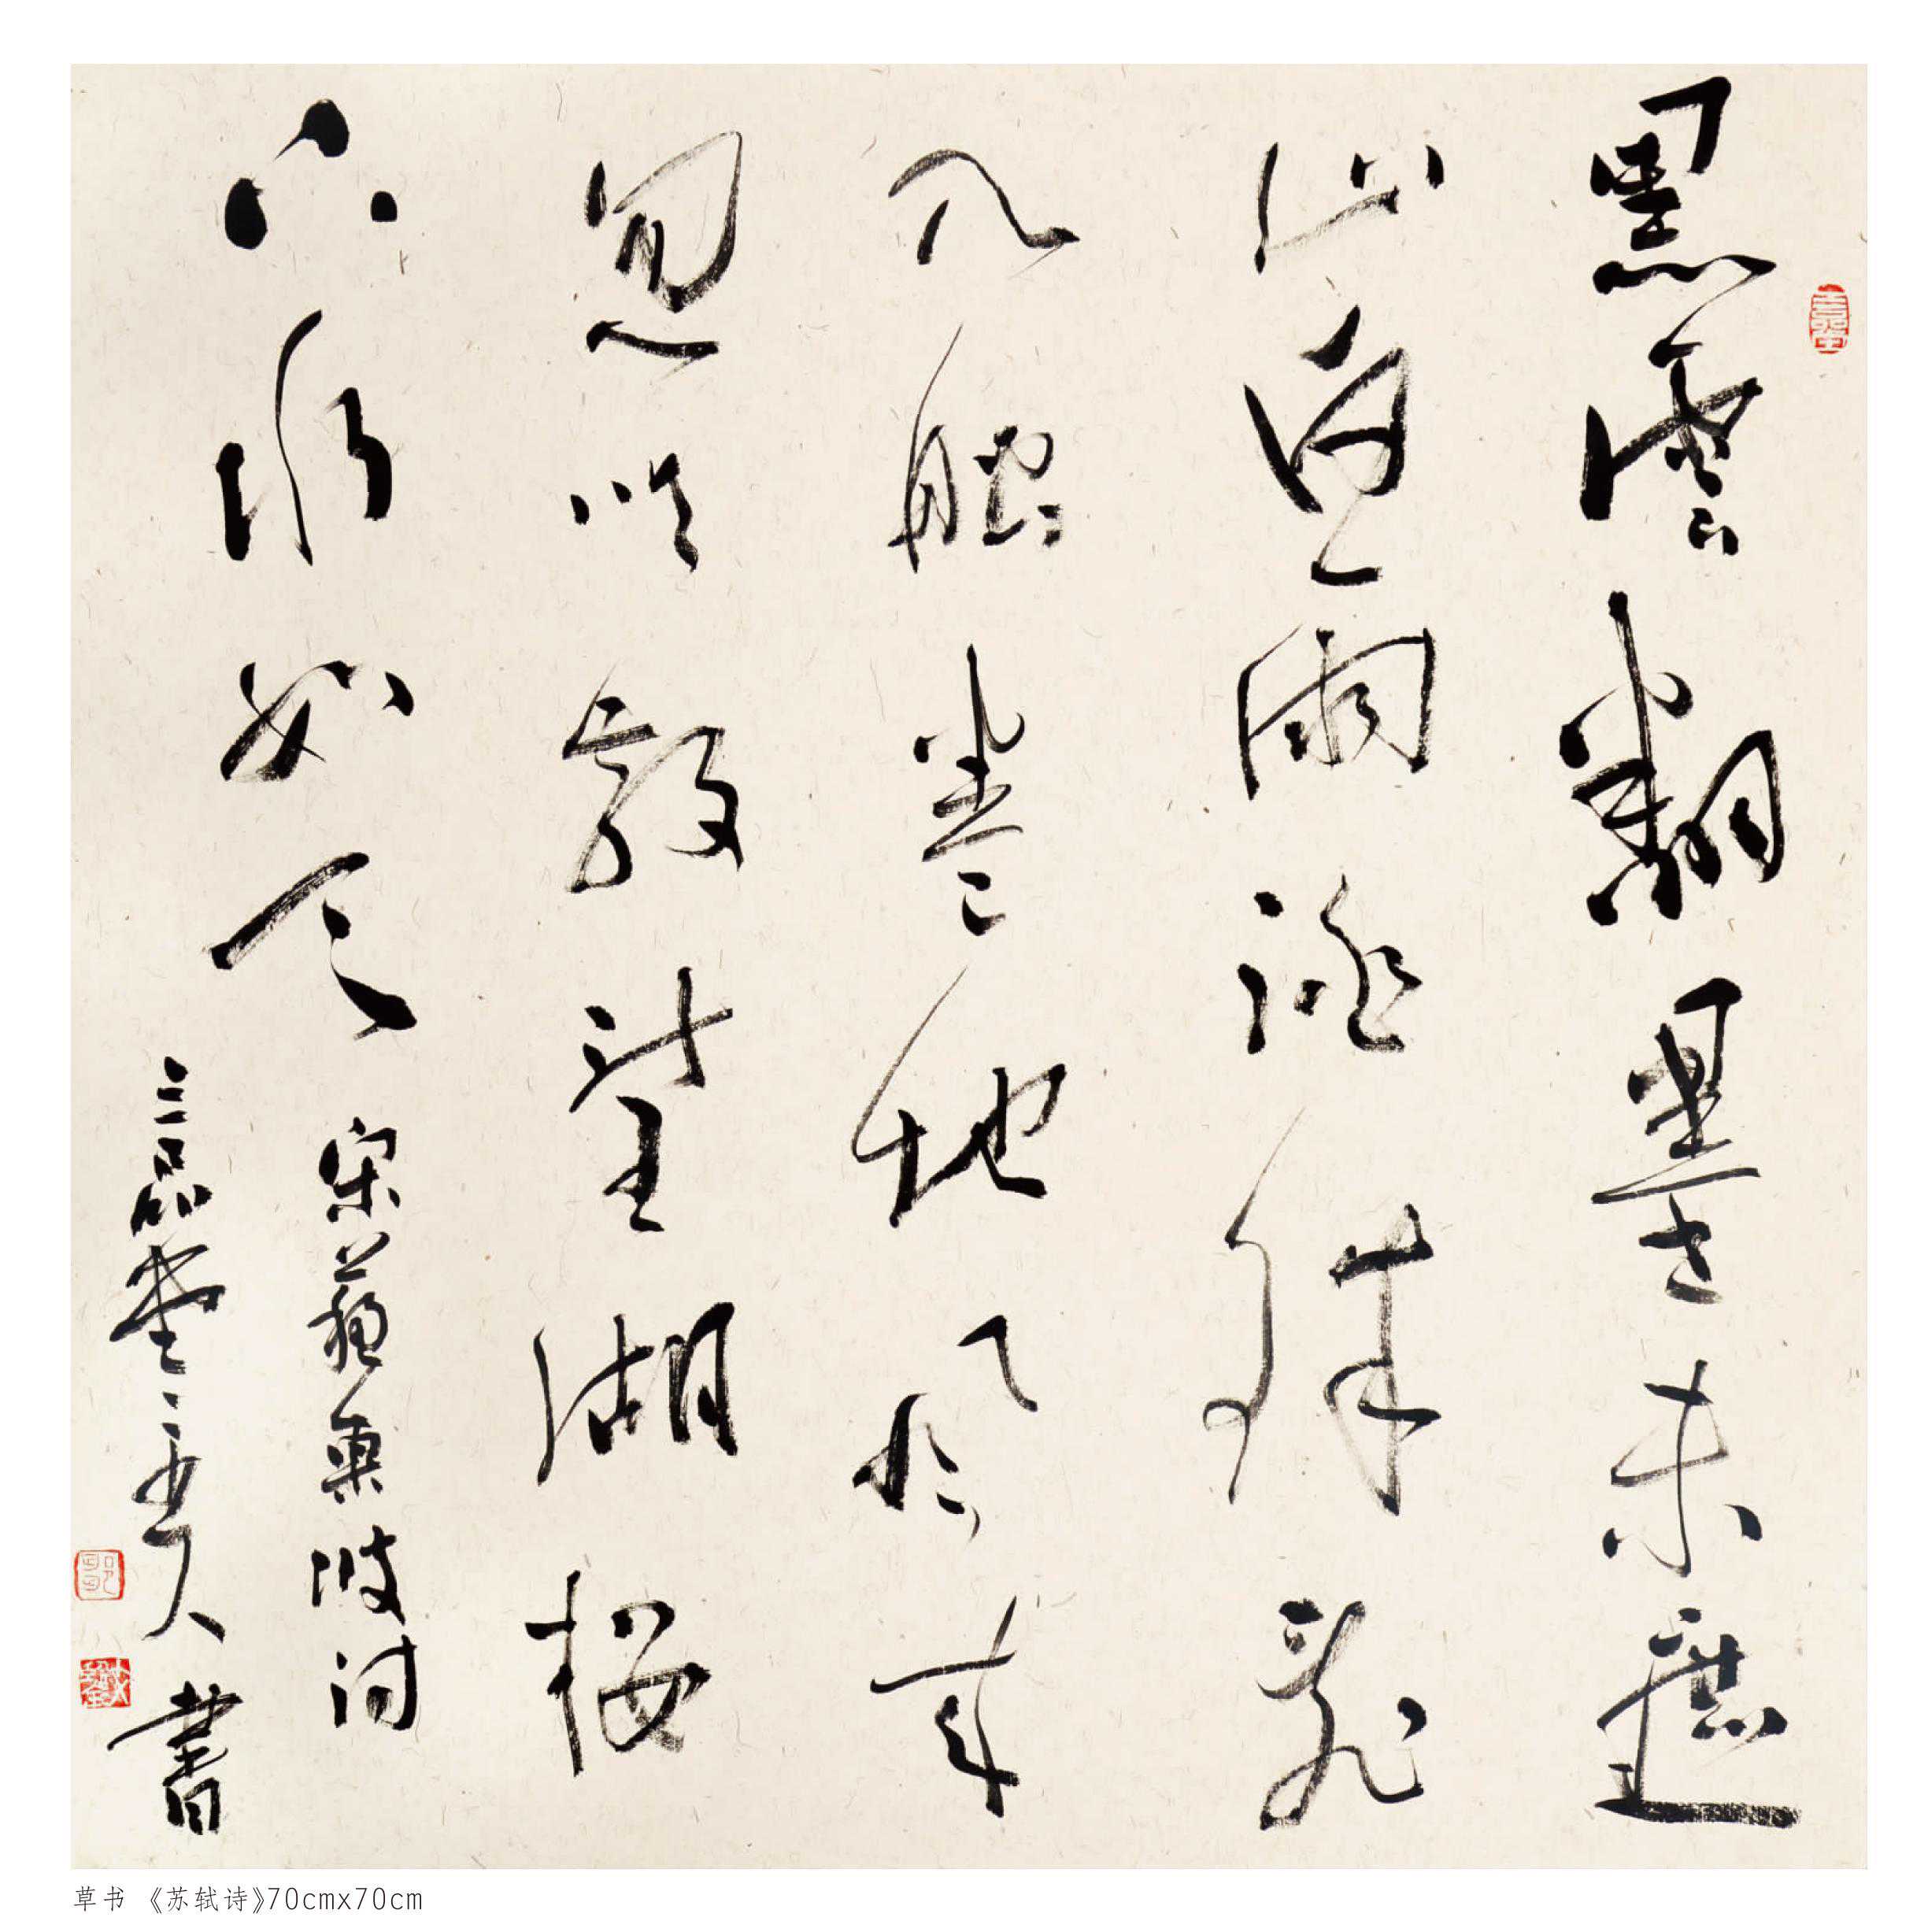 黑雲翻墨未遮
山白雨跳珠亂
入船卷地風來
忽吹散望湖樓
下水如天
宋蘇東坡詩
三品堂主人書
草书 《苏轼诗》70cmx70cm